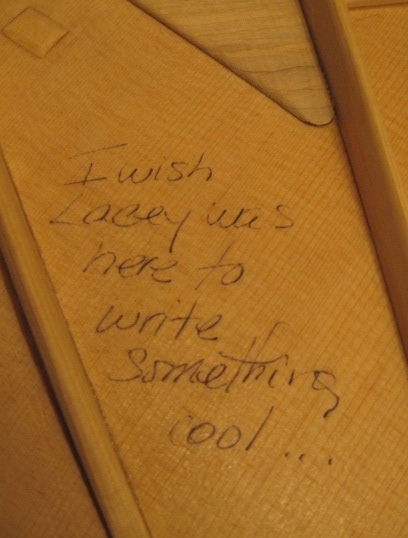 I wish
Lacey was
here to
write
something
cool ...